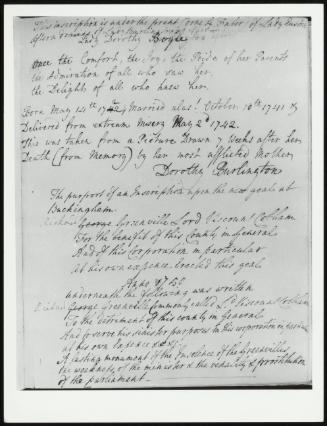 This inscription is under the print done to Favor of Lady
Afterwards
Lady Dorothy Boyle
once the Comfort, the Joy, the Pride of her Parents
the admiration of all who saw her,
the Delight of all who knew her.
Born May 14th 1724, Married alas! October 10th 1741 &
Delivered from extream misery May 2d 1742.
This was taken from a Picture Drawn 7 Weeks after her
Death (from Memory) by her most afflicted Mother,
Dorothy Burlington
The purport of an Inscription upon the new goal at
Buckingham.
Richard George Greenville Lord Viscount Cobham
For the benefit of this County in General
And of this Corporation in particular
at his own expence Erected this goal
underneath the following was written
George Greenville commonly called Ld Viscount Cobham
To the detriment of this county in General
And to serve his sinister purposes in this corporation in
at his own Expence &c
A lasting monument of the Insolence of the Greenvilles,
the weakness of the minister & the venality & prostitution
of the parliament